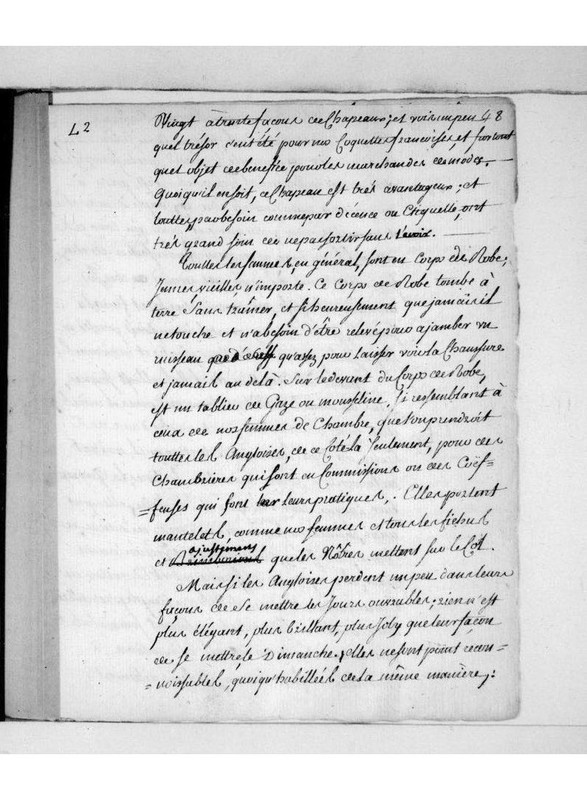 L2
48
Vingt à trente facons de Chapeaux; et voir un peu
quel trésor c'eut été pour nos Coquettes francoises, et surtout
quel objet de benefice pour les marchandes de modes.
Quoiqu'il en soit, ce Chapeau est très avantageux; et
touttes, par besoin comme par décence ou Etiquette, ont
très grand soin de ne pas sortir sans l'avoir.
Touttes les femmes, en général, sont en Corps de Robe;
Junes vieilles n'importe. Ce Corps de Robe tombe à
terre sans traîner, et si heureusement que jamais il
ne touche et n'a besoin d'être relevé pour ajamber un
ruisseau qu'assez pour laisser voir la Chaussure
et jamais au delà. Sur le devant du Corps de Robe,
est un tablier de Gaze ou mousseline, si ressemblant à
ceux de nos femmes de Chambre, que l'on prendroit
touttes les Angloises, de ce Côté la seulement, pour des
Chambrières qui sont en Commissions ou des Coëf=
=feuses qui font leurs pratiques. Elles portent
mantelets, comme nos femmes et tous les fichus
et ajustemens que les Nôtres mettent sur le Col.
Mais si les Angloises perdent un peu dans leurs
facons de se mettre les Jours ouvrables; rien n'est
plus élégant, plus brillant, plus Joly que leur facon
de se mettre le Dimanche; elles ne sont point recon=
=noissables, quoiqu'habillées de la même manière;